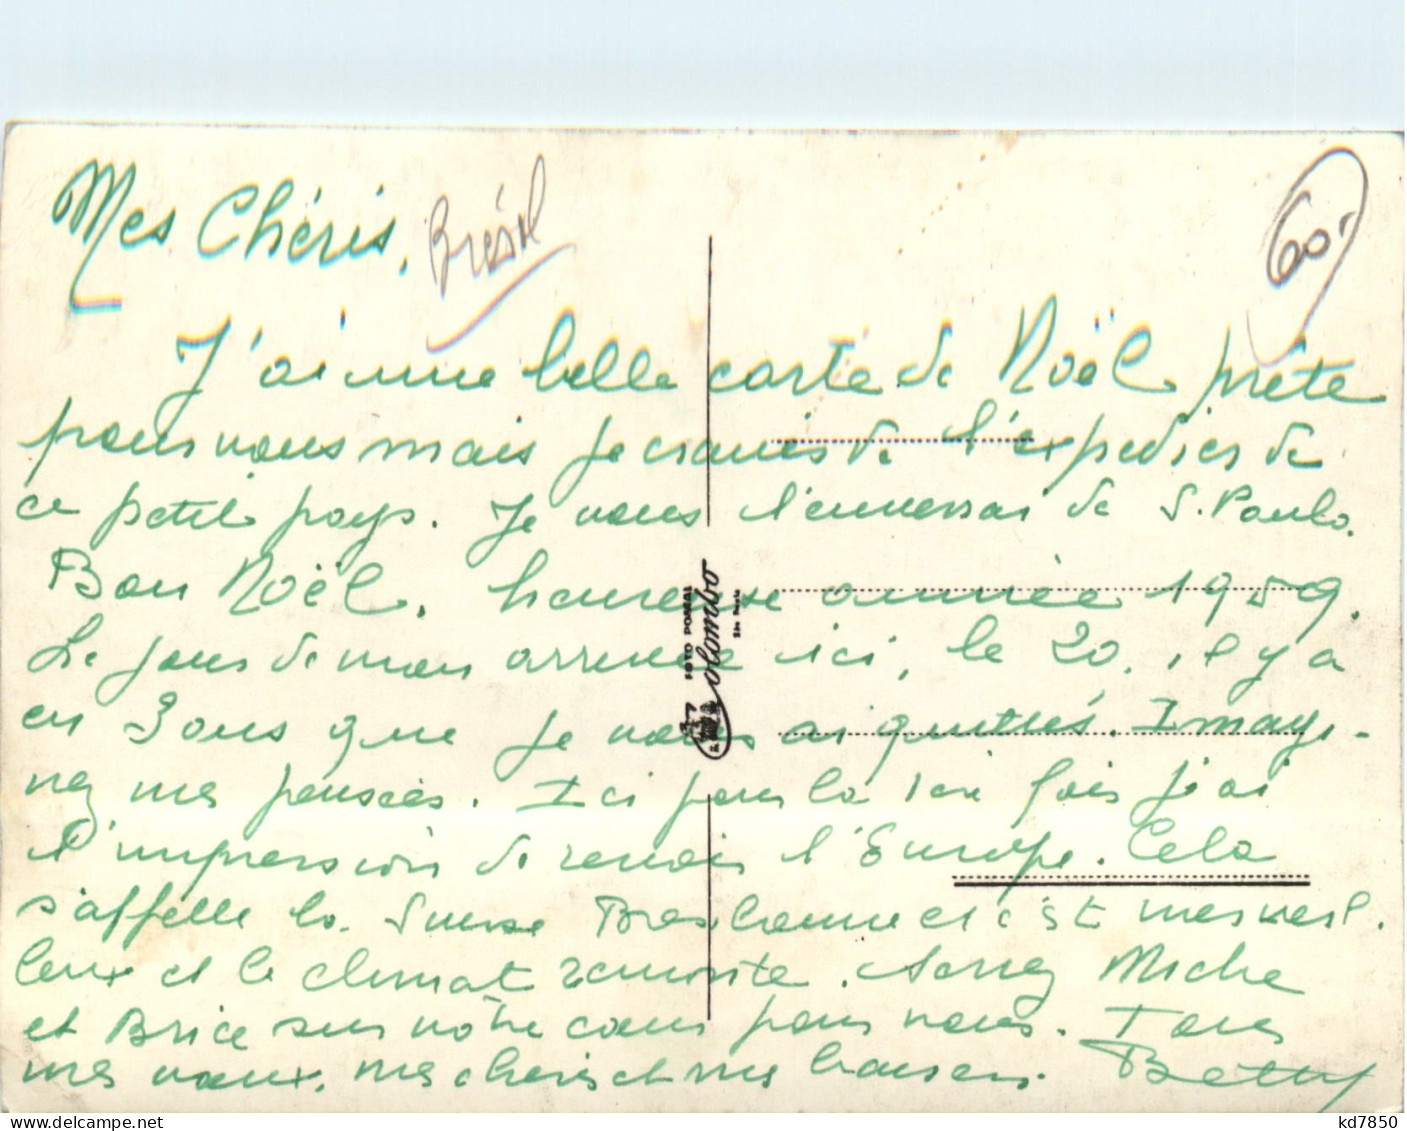 Mes Chéris,
Brésil
60,-
J'ai une belle carte de Noël prête
pour vous mais je crains de l'expédier de
ce petit pays. Je vous l'enverrai de S. Paulo.
Bon Noël, heureuse année 1959.
Le jour de mon arrivée ici, le 20, il y a
eu 3 ans que je vous ai quittés. Imagi-
nez mes pensées. Ici pour la 1ère fois j'ai
l'impression de revoir l'Europe. Cela
s'appelle la Suisse Brésilienne et c'est merveil-
leux et le climat remonte. Serrez Miche
et Brice sur votre cœur pour nous. Tous
mes vœux, mes chéris et mes baisers. Betty
FOTO POSTAL
Colombo
São Paulo
kd7850